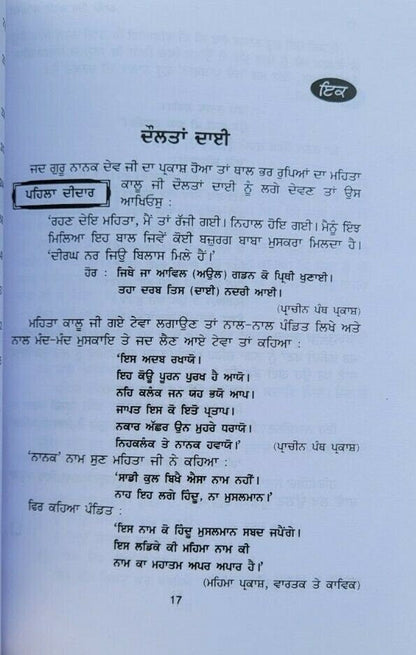 ਇਕ
ਦੌਲਤਾਂ ਦਾਈ
ਜਦ ਗੁਰੂ ਨਾਨਕ ਦੇਵ ਜੀ ਦਾ ਪ੍ਰਕਾਸ਼ ਹੋਆ ਤਾਂ ਥਾਲ ਭਰ ਰੁਪਿਆਂ ਦਾ ਮਹਿਤਾ
ਪਹਿਲਾ ਦੀਦਾਰ
ਕਾਲੂ ਜੀ ਦੌਲਤਾਂ ਦਾਈ ਨੂੰ ਲਗੇ ਦੇਵਣ ਤਾਂ ਉਸ
ਆਖਿਓਸੁ :
'ਰਹਣ ਦੇਇ ਮਹਿਤਾ, ਮੈਂ ਤਾਂ ਰੱਜੀ ਗਈ। ਨਿਹਾਲ ਹੋਇ ਗਈ। ਮੈਨੂੰ ਇੰਝ
ਮਿਲਿਆ ਇਹ ਬਾਲ ਜਿਵੇਂ ਕੋਈ ਬਜ਼ੁਰਗ ਬਾਬਾ ਮੁਸਕਰਾ ਮਿਲਦਾ ਹੈ।
'ਦੀਰਘ ਨਰ ਜਿਉ ਬਿਲਾਸ ਮਿਲੇ ਹੈਂ।'
ਹੋਰ : ਜਿਥੇ ਜਾ ਆਵਿਲ (ਅਉਲ) ਗਡਨ ਕੋ ਪ੍ਰਿਥੀ ਖੁਣਾਈ।
ਤਹਾ ਦਰਬ ਤਿਸ (ਦਾਈ) ਨਦਰੀ ਆਈ।
(ਪ੍ਰਾਚੀਨ ਪੰਥ ਪ੍ਰਕਾਸ਼)
ਮਹਿਤਾ ਕਾਲੂ ਜੀ ਗਏ ਟੇਵਾ ਲਗਾਉਣ ਤਾਂ ਨਾਲ-ਨਾਲ ਪੰਡਿਤ ਲਿਖੇ ਅਤੇ
ਨਾਲ ਮੰਦ-ਮੰਦ ਮੁਸਕਾਇ ਤੇ ਜਦ ਲੈਣ ਆਏ ਟੇਵਾ ਤਾਂ ਕਹਿਆ :
'ਇਸ ਅਦਬ ਰਖਾਯੋ।
ਇਹ ਕੋਊ ਪੂਰਨ ਪੁਰਖ ਹੈ ਆਯੋ।
ਨਹਿ ਕਲੰਕ ਜਨ ਯਹ ਭਯੋ ਆਪ।
ਜਾਪਤ ਇਸ ਕੋ ਇਤੋ ਪ੍ਰਤਾਪ।
ਨਕਾਰ ਅੱਛਰ ਉਨ ਮੁਹਰੇ ਧਰਾਯੋ।
ਨਿਹਕਲੰਕ ਤੇ ਨਾਨਕ ਹਵਾਯੋ।' (ਪ੍ਰਾਚੀਨ ਪੰਥ ਪ੍ਰਕਾਸ਼)
'ਨਾਨਕ' ਨਾਮ ਸੁਣ ਮਹਿਤਾ ਜੀ ਨੇ ਕਹਿਆ :
'ਸਾਡੀ ਕੁਲ ਬਿਖੈ ਐਸਾ ਨਾਮ ਨਹੀਂ।
ਨਾਹ ਇਹ ਲਗੇ ਹਿੰਦੂ, ਨਾ ਮੁਸਲਮਾਨ।'
ਫਿਰ ਕਹਿਆ ਪੰਡਿਤ :
'ਇਸ ਨਾਮ ਕੋ ਹਿੰਦੂ ਮੁਸਲਮਾਨ ਸਬਦ ਜਪੈਂਗੇ।
ਇਸ ਲੜਿਕੇ ਕੀ ਮਹਿਮਾ ਨਾਮ ਕੀ
ਨਾਮ ਕਾ ਮਹਾਤਮ ਅਪਰ ਅਪਾਰ ਹੈ।'
(ਮਹਿਮਾ ਪ੍ਰਕਾਸ਼, ਵਾਰਤਕ ਤੇ ਕਾਵਿਕ)
17